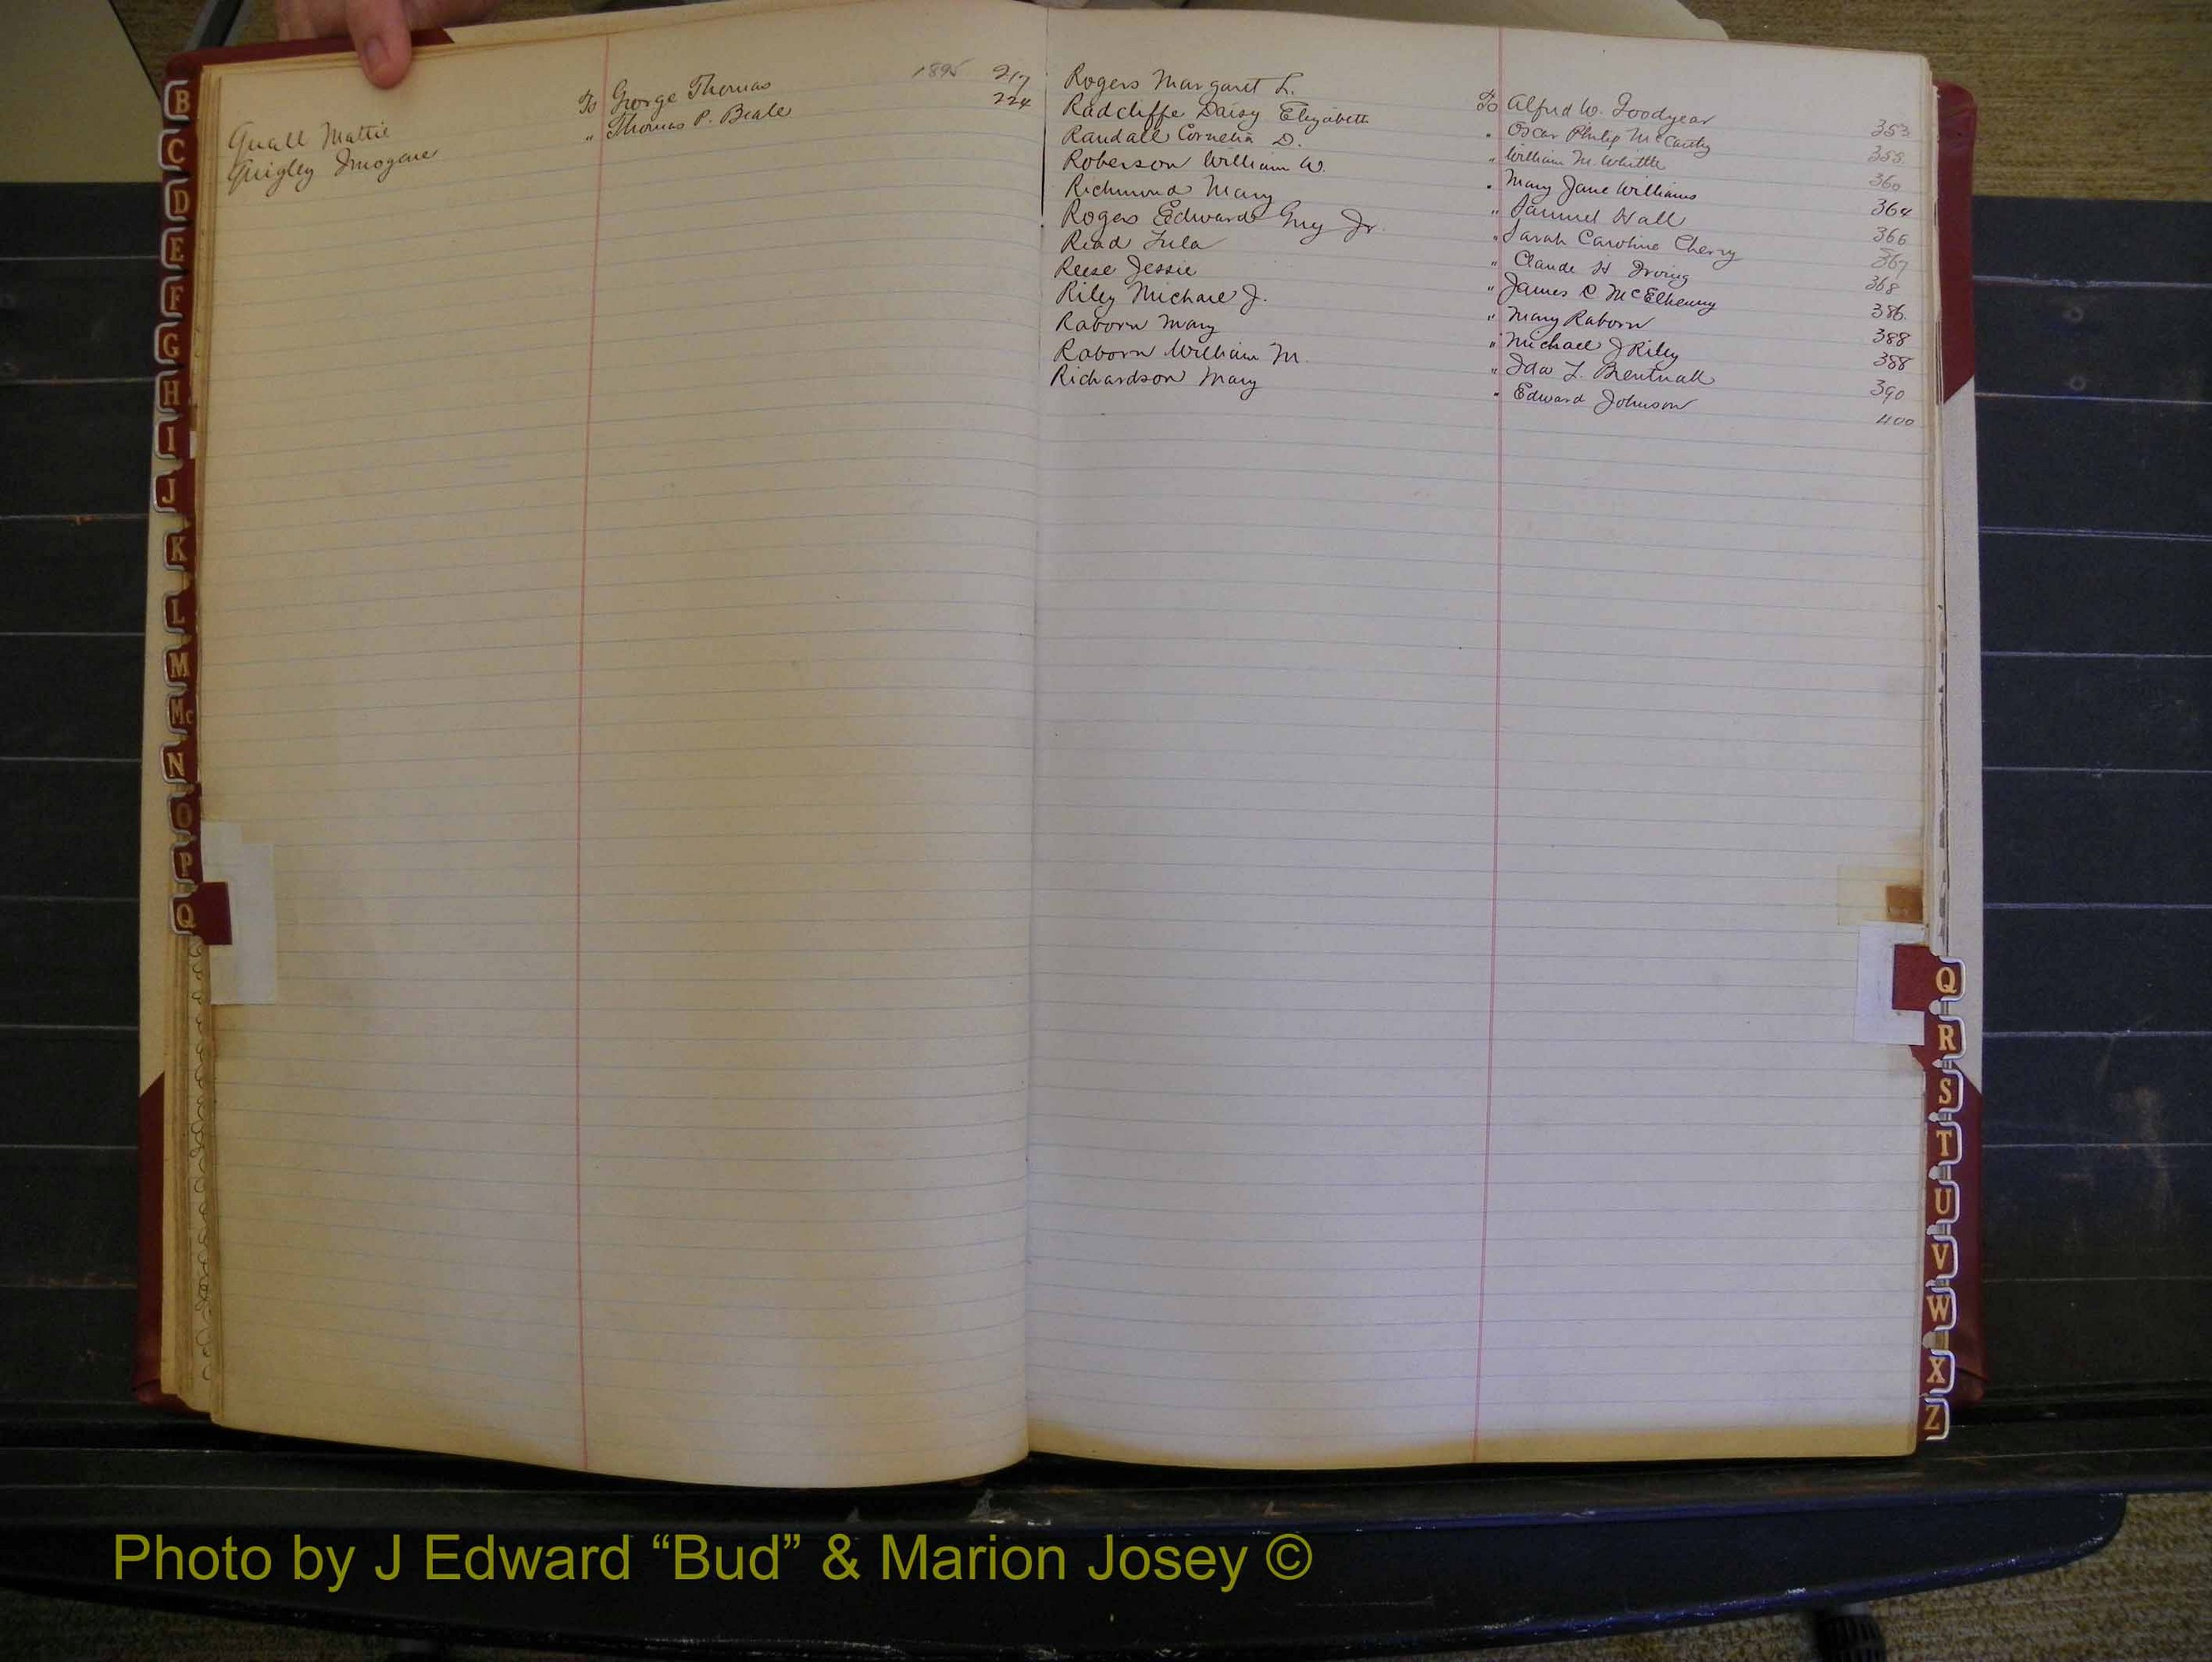 Quall Mattie To George Thomas 1895 217
Quigley Imogene " Thomas P. Beale 224
Rogers Margaret L. To Alfred W. Goodyear 353
Radcliffe Daisy Elizabeth " Oscar Philip McCarthy 358
Randall Cornelia D. " William M. Whittle 360
Roberson William W. " Mary Jane Williams 364
Richmond Mary " Samuel Hall 366
Rogers Edward Guy Jr. " Sarah Caroline Cherry 367
Read Lula " Claude H Irving 368
Reese Jessie " James C McElhenny 386
Riley Michael J. " Mary Raborn 388
Raborn Mary " Michael J Riley 388
Raborn William M. " Ida L. Brentnall 390
Richardson Mary " Edward Johnson 400
B
C
D
E
F
G
H
I
J
K
L
M
Mc
N
O
P
Q
Q
R
S
T
U
V
W
X
Z
Photo by J Edward “Bud” & Marion Josey ©